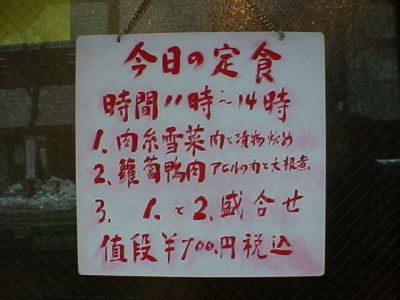 今日の定食
時間11時~14時
1.肉糸雪菜 肉と漬物炒め
2.蘿蔔鴨肉 アヒルの肉と大根煮
3. 1.と2.盛合せ
値段￥700.円税込